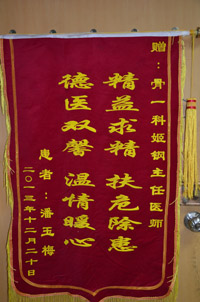 赠：骨一科姬钢主任医师
精益求精 扶危除患
德医双馨 温情暖心
患者：潘玉梅
二〇一三年十二月二十日